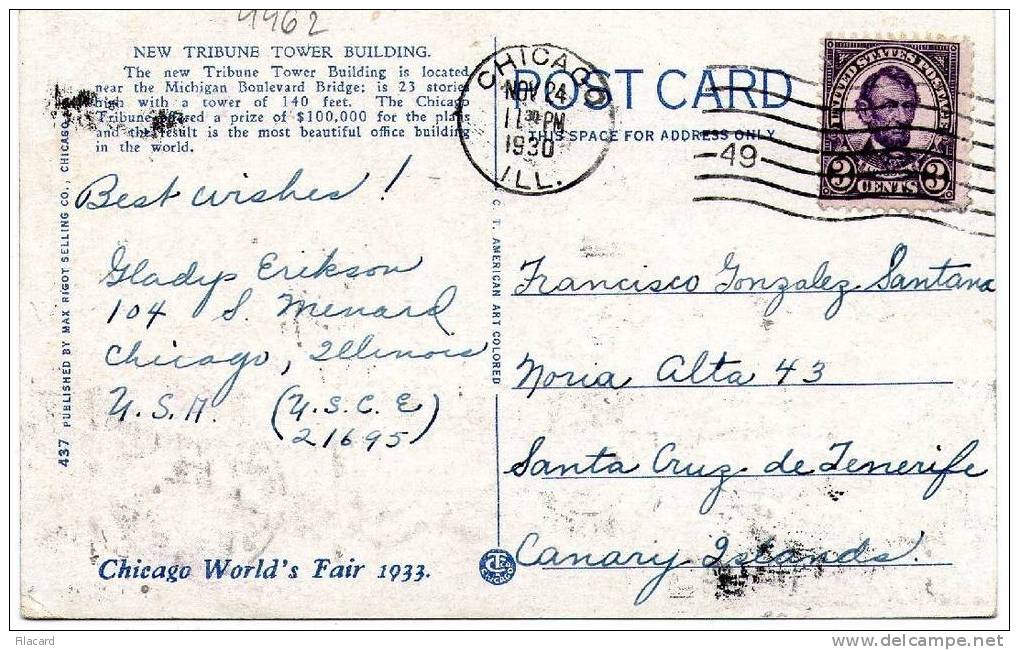 4462
NEW TRIBUNE TOWER BUILDING.
The new Tribune Tower Building is located
near the Michigan Boulevard Bridge; is 23 stories
high with a tower of 140 feet. The Chicago
Tribune a prize of $100,000 for the plans
and the result is the most beautiful office building
in the world.
Best wishes!
Gladys Erikson
104 S. Menard
Chicago, Illinois
U.S.A. (U.S.C.E
21695)
Chicago World's Fair 1933.
437 PUBLISHED BY MAX RIGOT SELLING CO., CHICAGO
C. T. AMERICAN ART COLORED
CHICAGO
NOV 24
11 30 PM
1930
ILL.
POST CARD
THIS SPACE FOR ADDRESS ONLY
49
UNITED STATES POSTAGE
3 CENTS 3
Francisco Gonzalez Santana
Noria Alta 43
Santa Cruz de Tenerife
Canary Islands.
CHICAGO
filacard
www.delcampe.net